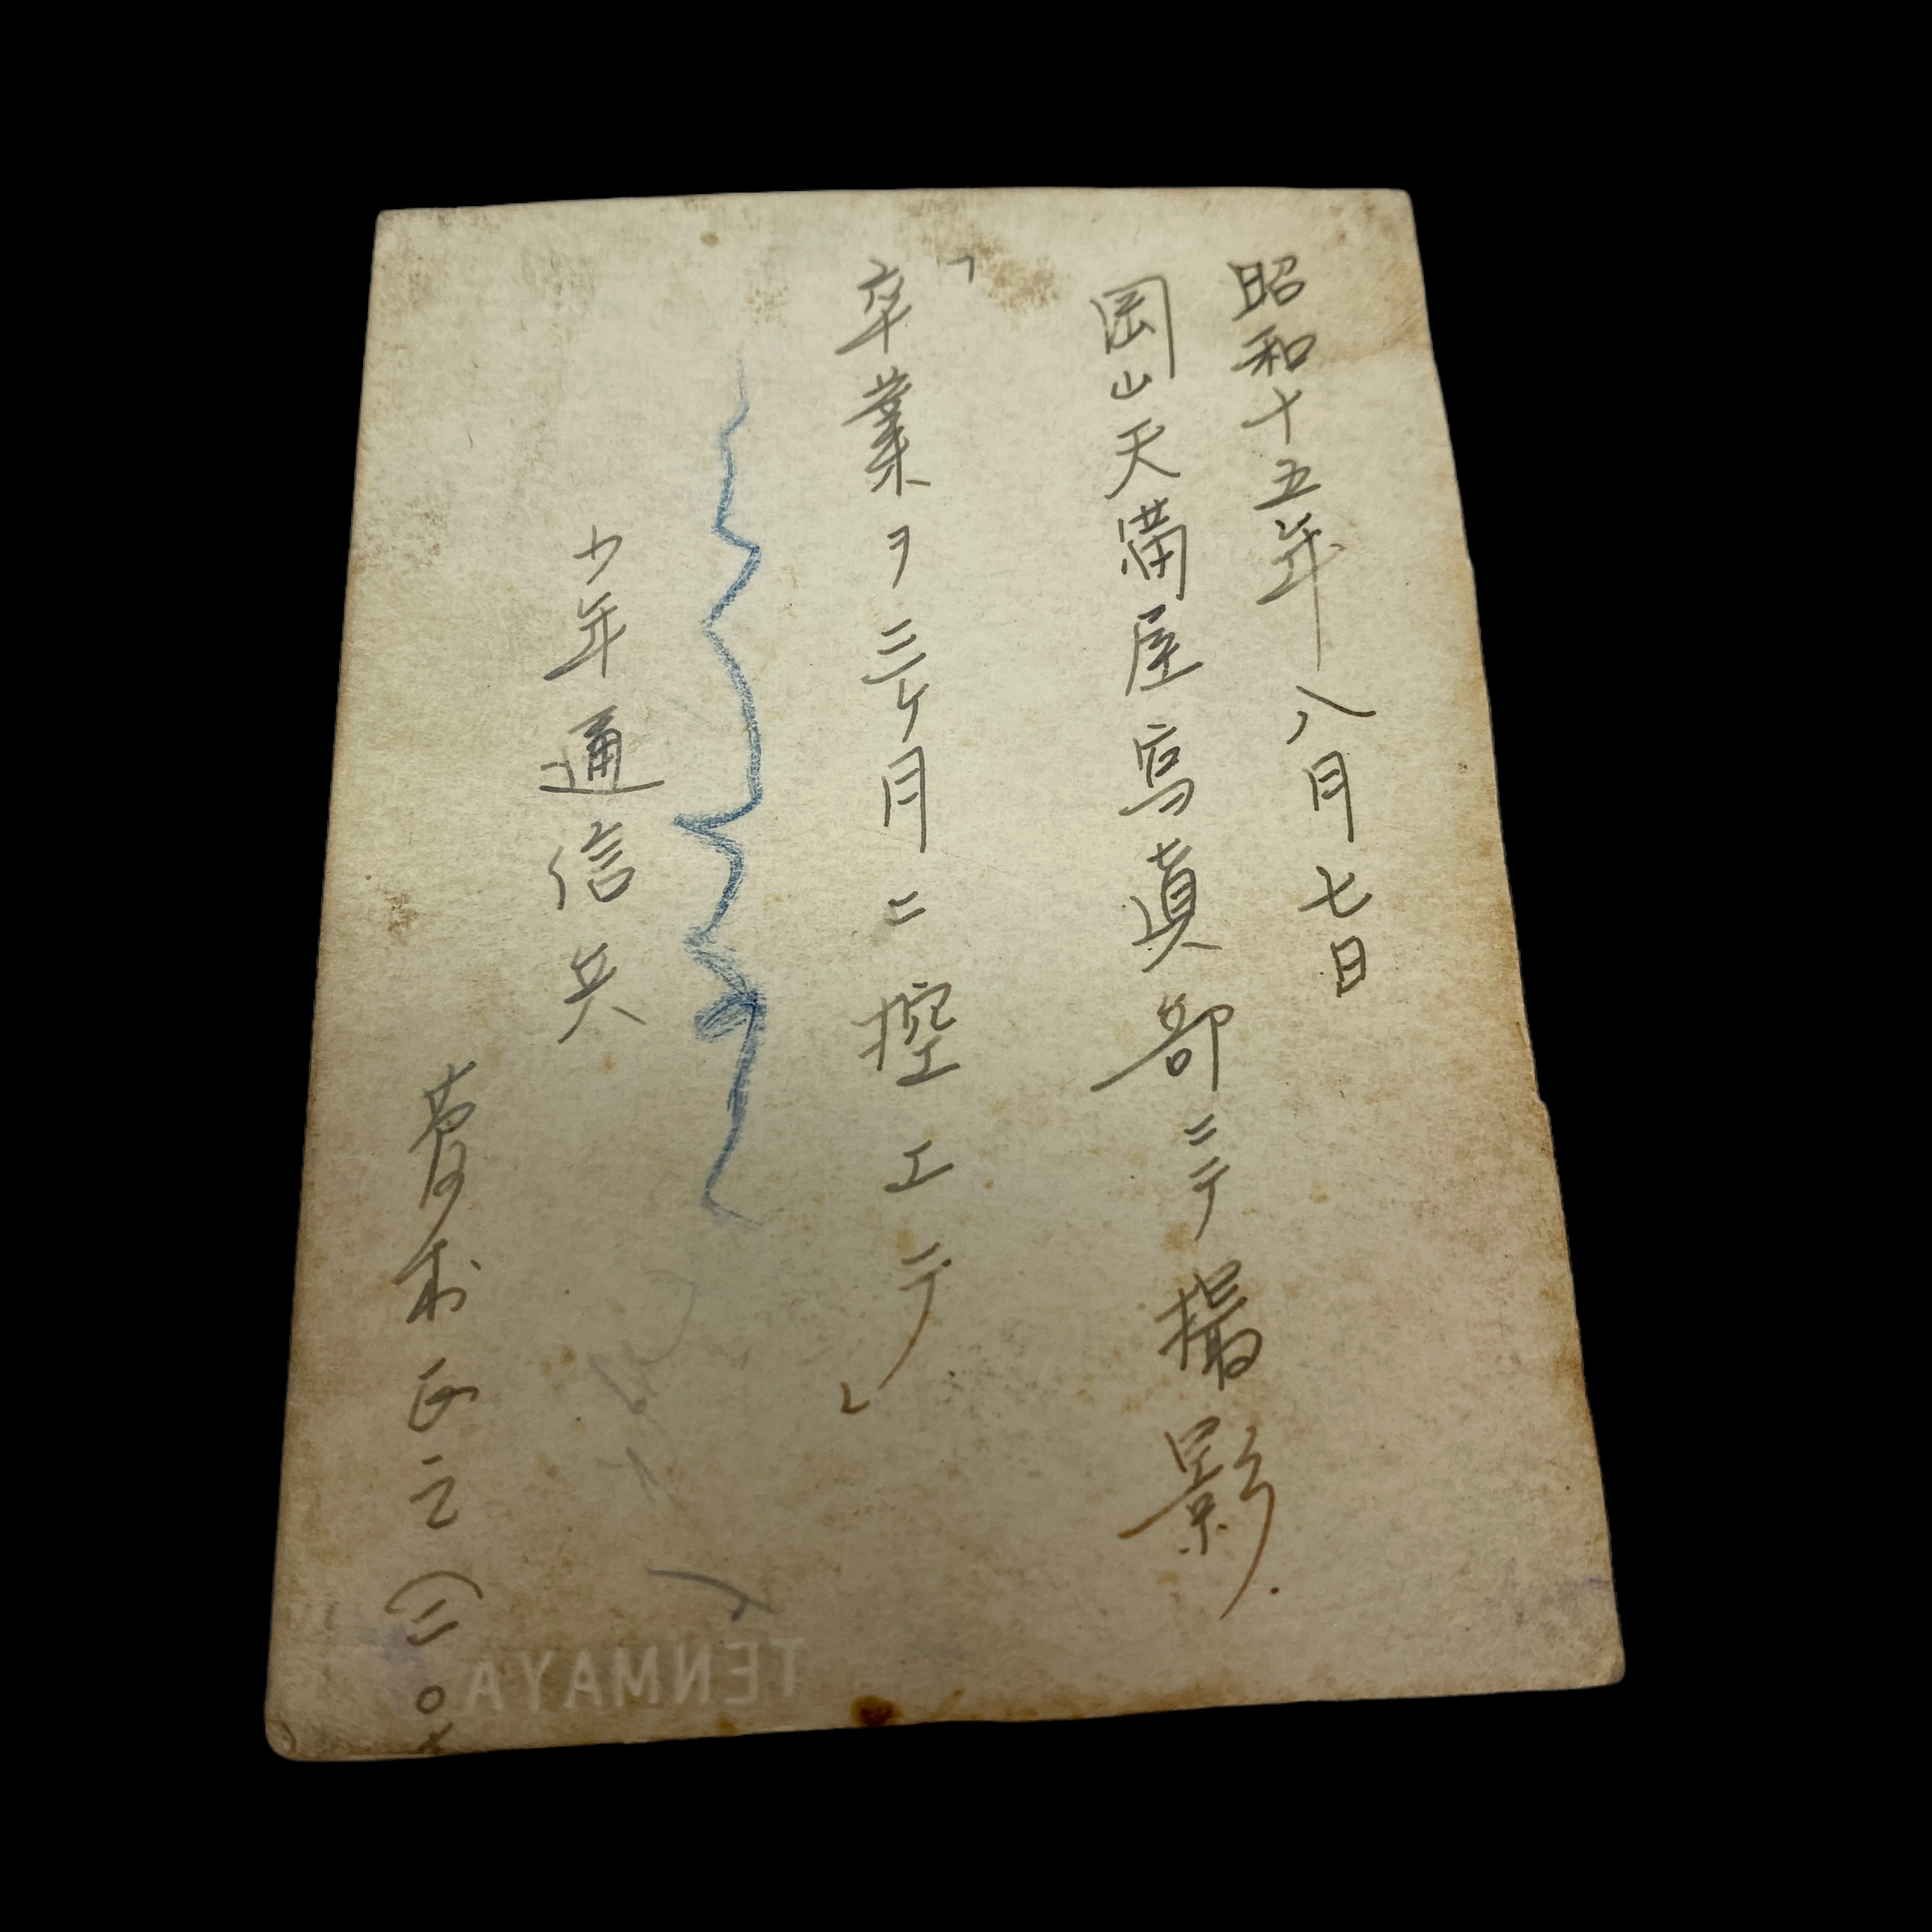 昭和十五年八月七日
岡山天満屋寫眞部ニテ撮影
「卒業ヲ三ヶ月ニ控エテ」
少年通信兵
正之(二〇才
TENMAYA